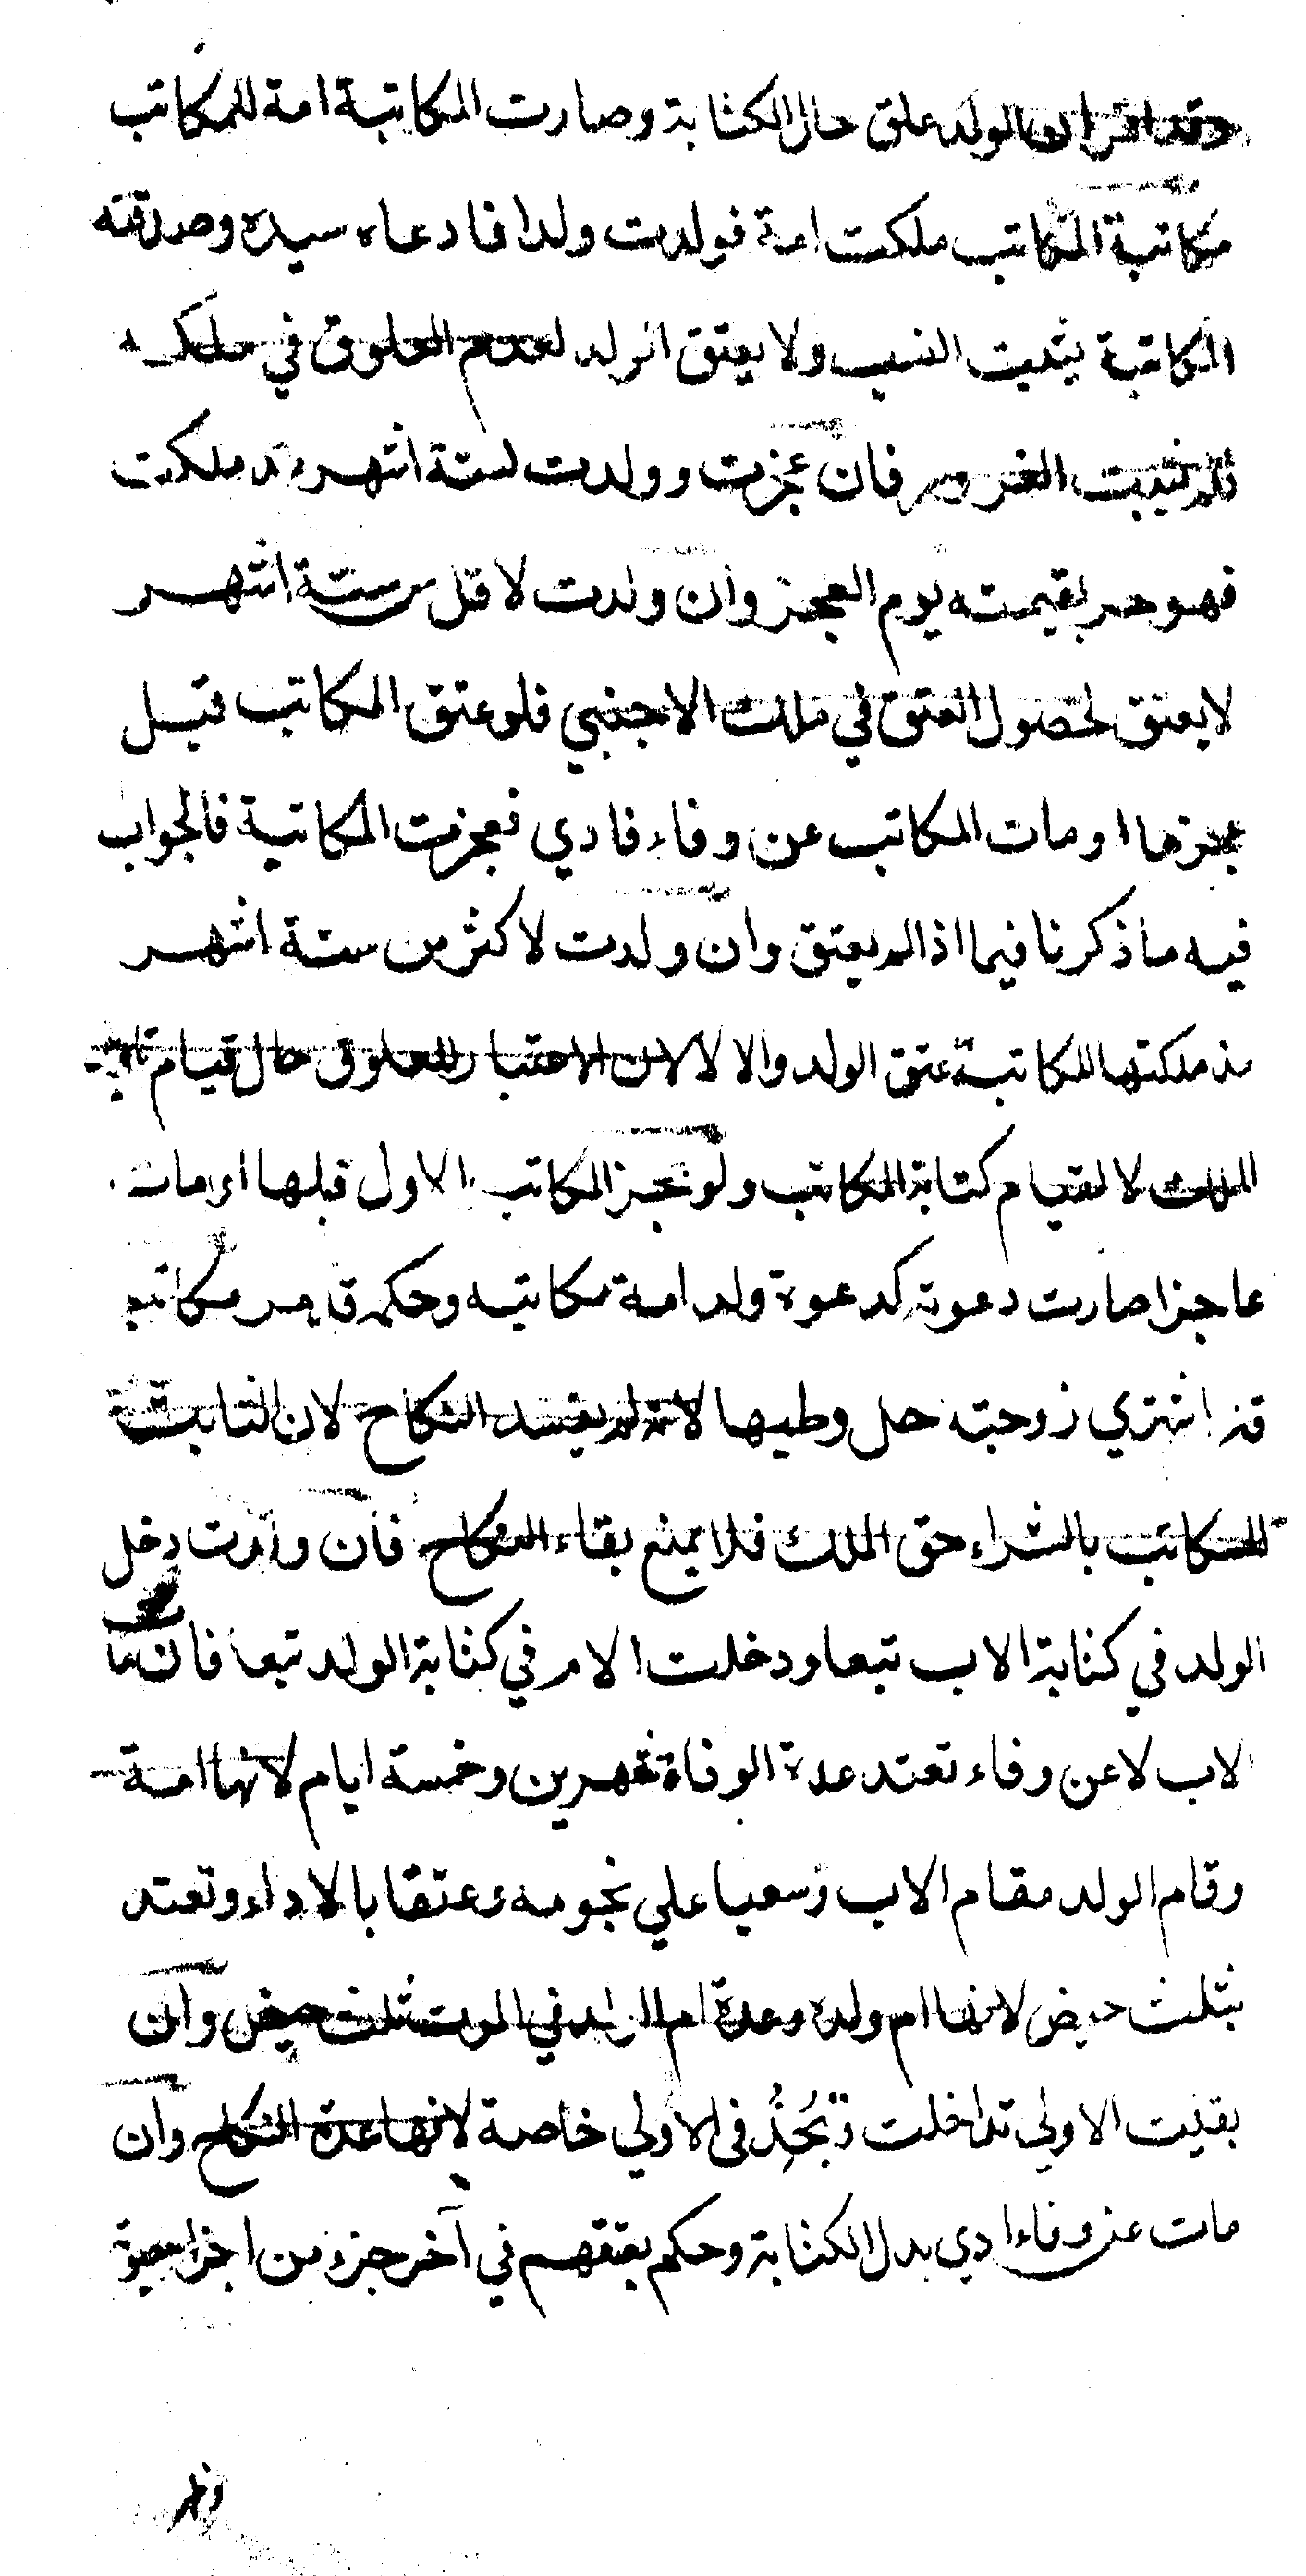 وقد اقر ان الولد علق حال الكتابة وصارت المكاتبة امة للمكاتب
مكاتبة المكاتب ملكت امة فولدت ولدا فادعاه سيده وصدقته
المكاتبة يثبت النسب ولا يعتق الولد لعدم العلوق في ملكه
فلم يثبت الغرور فان عجزت وولدت لستة اشهر مذ ملكت
فهو حر بقيمته يوم العجز وان ولدت لاقل من ستة اشهر
لا يعتق لحصول العتق في ملك الاجنبي فلو عتق المكاتب قبل
عجزها او مات المكاتب عن وفاء فادي فعجزت المكاتبة فالجواب
فيه ما ذكرنا فيما اذا لم يعتق وان ولدت لاكثر من ستة اشهر
مذ ملكتها المكاتبة عتق الولد والا لا لان الاعتبار للعلوق حال قيام
الملك لا لقيام كتابة المكاتب ولو عجز المكاتب الاول قبلها او مات
عاجزا صارت دعوته كدعوة ولد امة مكاتبه وحكمه قد مر مكاتب
قد اشتري زوجته حل وطيها لانه لم يفسد النكاح لان الثابت
للمكاتب بالشراء حق الملك فلا يمنع بقاء النكاح فان ولدت دخل
الولد في كتابة الاب تبعا ودخلت الام في كتابة الولد تبعا فان مات
الاب لا عن وفاء تعتد عدة الوفاة شهرين وخمسة ايام لانها امة
وقام الولد مقام الاب وسعيا علي نجومه وعتقا بالاداء وتعتد
بثلث حيض لانها ام ولده وعدة ام الولد في الموت ثلث حيض وان
بقيت الاولي تداخلت وتُحِدُّ في الاولي خاصة لانها عدة النكاح وان
مات عن وفاء ادي بدل الكتابة وحكم بعتقهم في آخر جزء من اجزاء حيوة